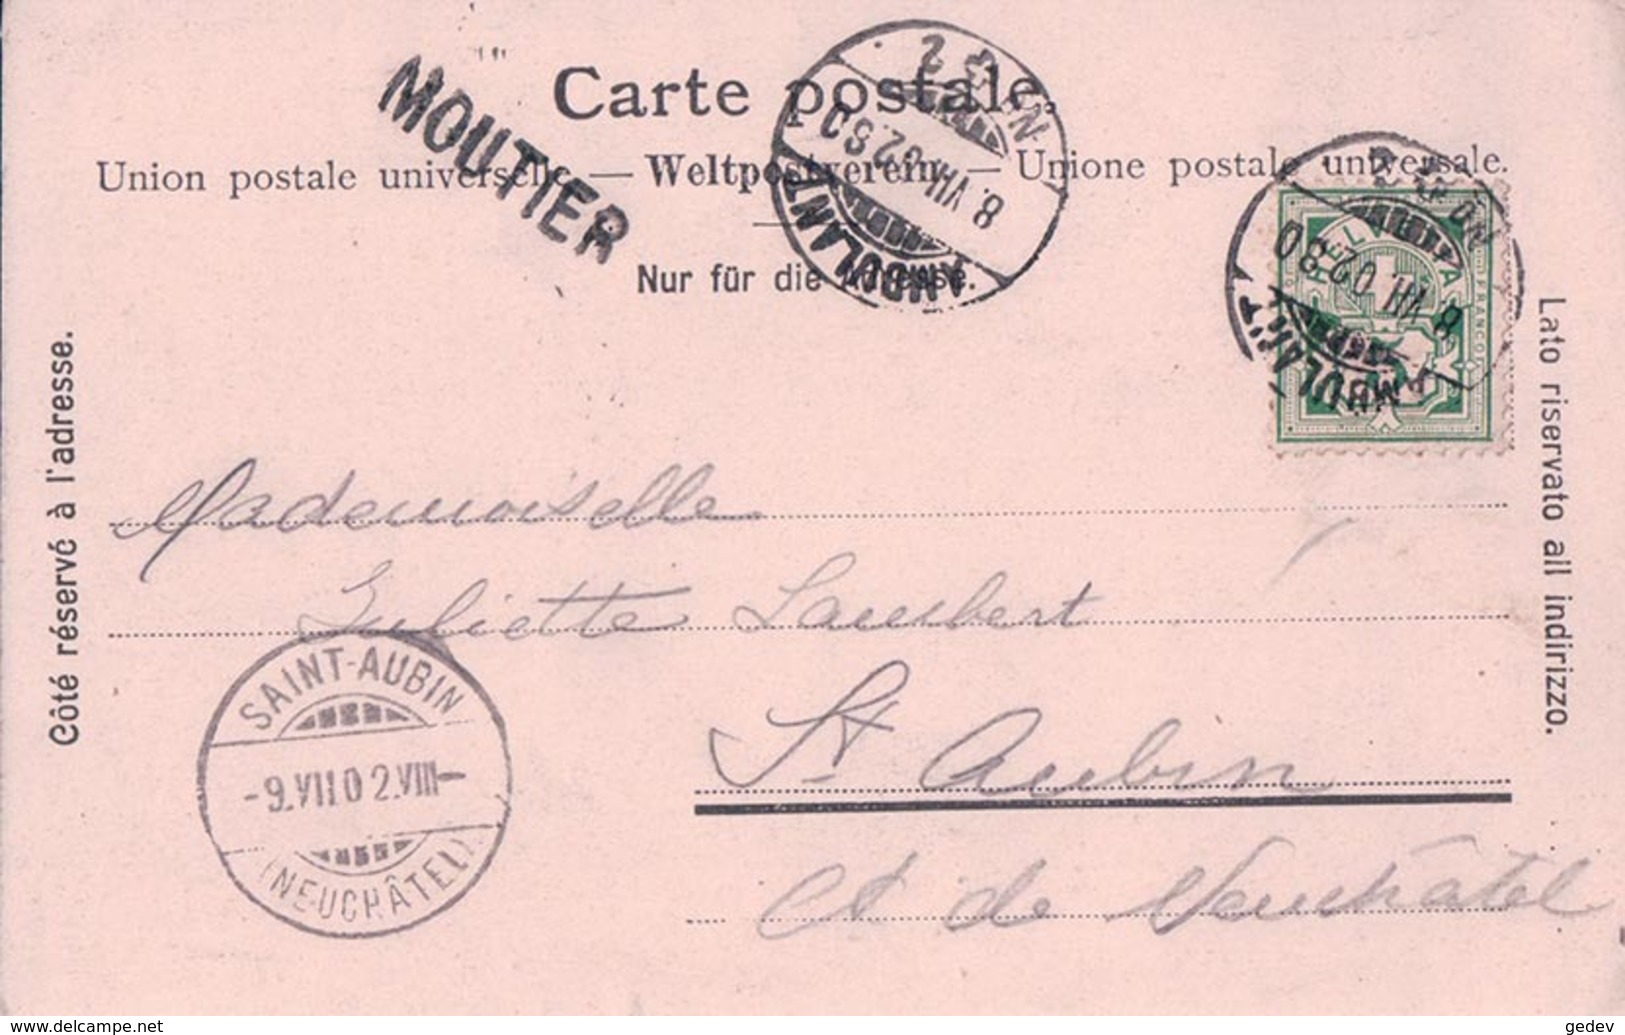 MOUTIER
Carte postale.
Union postale universelle. — Weltpostverein. — Unione postale universale.
Nur für die Adresse.
AMBULANT
8. VII. 02.
AMBULANT
8. VII. 02.
HELVETIA
FRANCO
Côté réservé à l'adresse.
Lato riservato all indirizzo.
Mademoiselle
Juliette Lambert
St Aubin
Ct de Neuchâtel
SAINT-AUBIN
-9.VII.02.VIII-
(NEUCHÂTEL)
www.delcampe.net
gedev